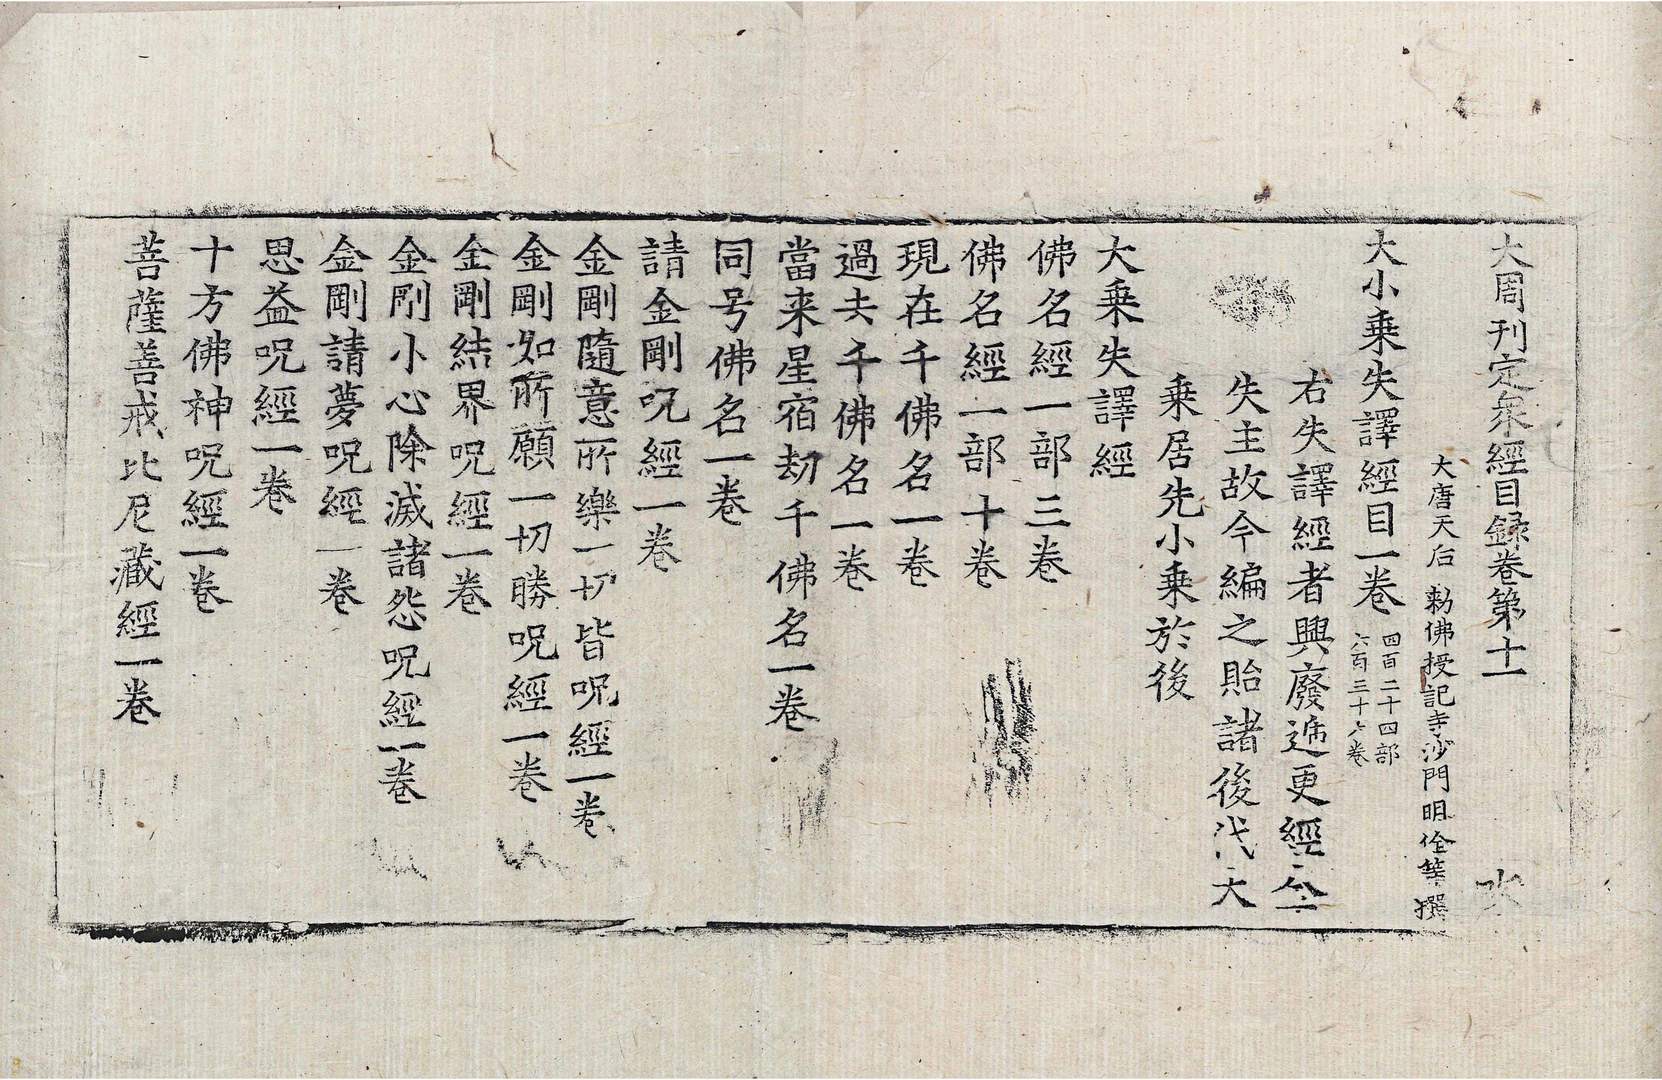 大周刊定衆經目録卷第十一 水
大唐天后 勑佛授記寺沙門明佺等撰
大小乗失譯經目一卷 四百二十四部
六百三十七卷
右失譯經者興廢遞更經
失主故今編之貽諸後代大
乗居先小乗於後
大乗失譯經
佛名經一部三卷
佛名經一部十卷
現在千佛名一卷
過去千佛名一卷
當来星宿刼千佛名一卷
同号佛名一卷
請金剛呪經一卷
金剛隨意所樂一切皆呪經一卷
金剛如所願一切勝呪經一卷
金剛結界呪經一卷
金剛小心除滅諸怨呪經一卷
金剛請夢呪經一卷
思益呪經一卷
十方佛神呪經一卷
菩薩善戒比尼藏經一卷